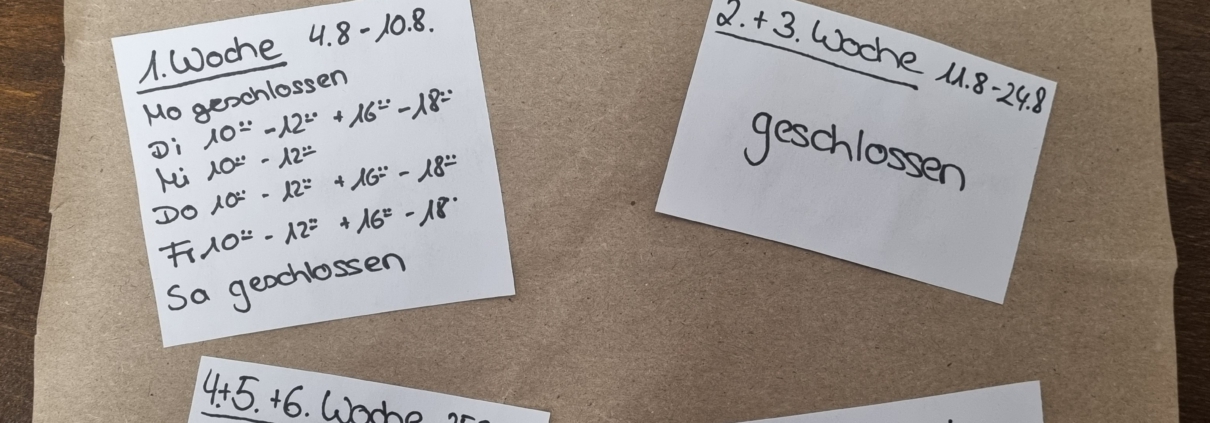 1. Woche 4.8 - 10.8.
Mo geschlossen
Di 10⁰⁰ - 12⁰⁰ + 16⁰⁰ - 18⁰⁰
Mi 10⁰⁰ - 12⁰⁰
Do 10⁰⁰ - 12⁰⁰ + 16⁰⁰ - 18⁰⁰
Fr 10⁰⁰ - 12⁰⁰ + 16⁰⁰ - 18.
Sa geschlossen
2. + 3. Woche 11.8 - 24.8
geschlossen
4. + 5. + 6. Woche